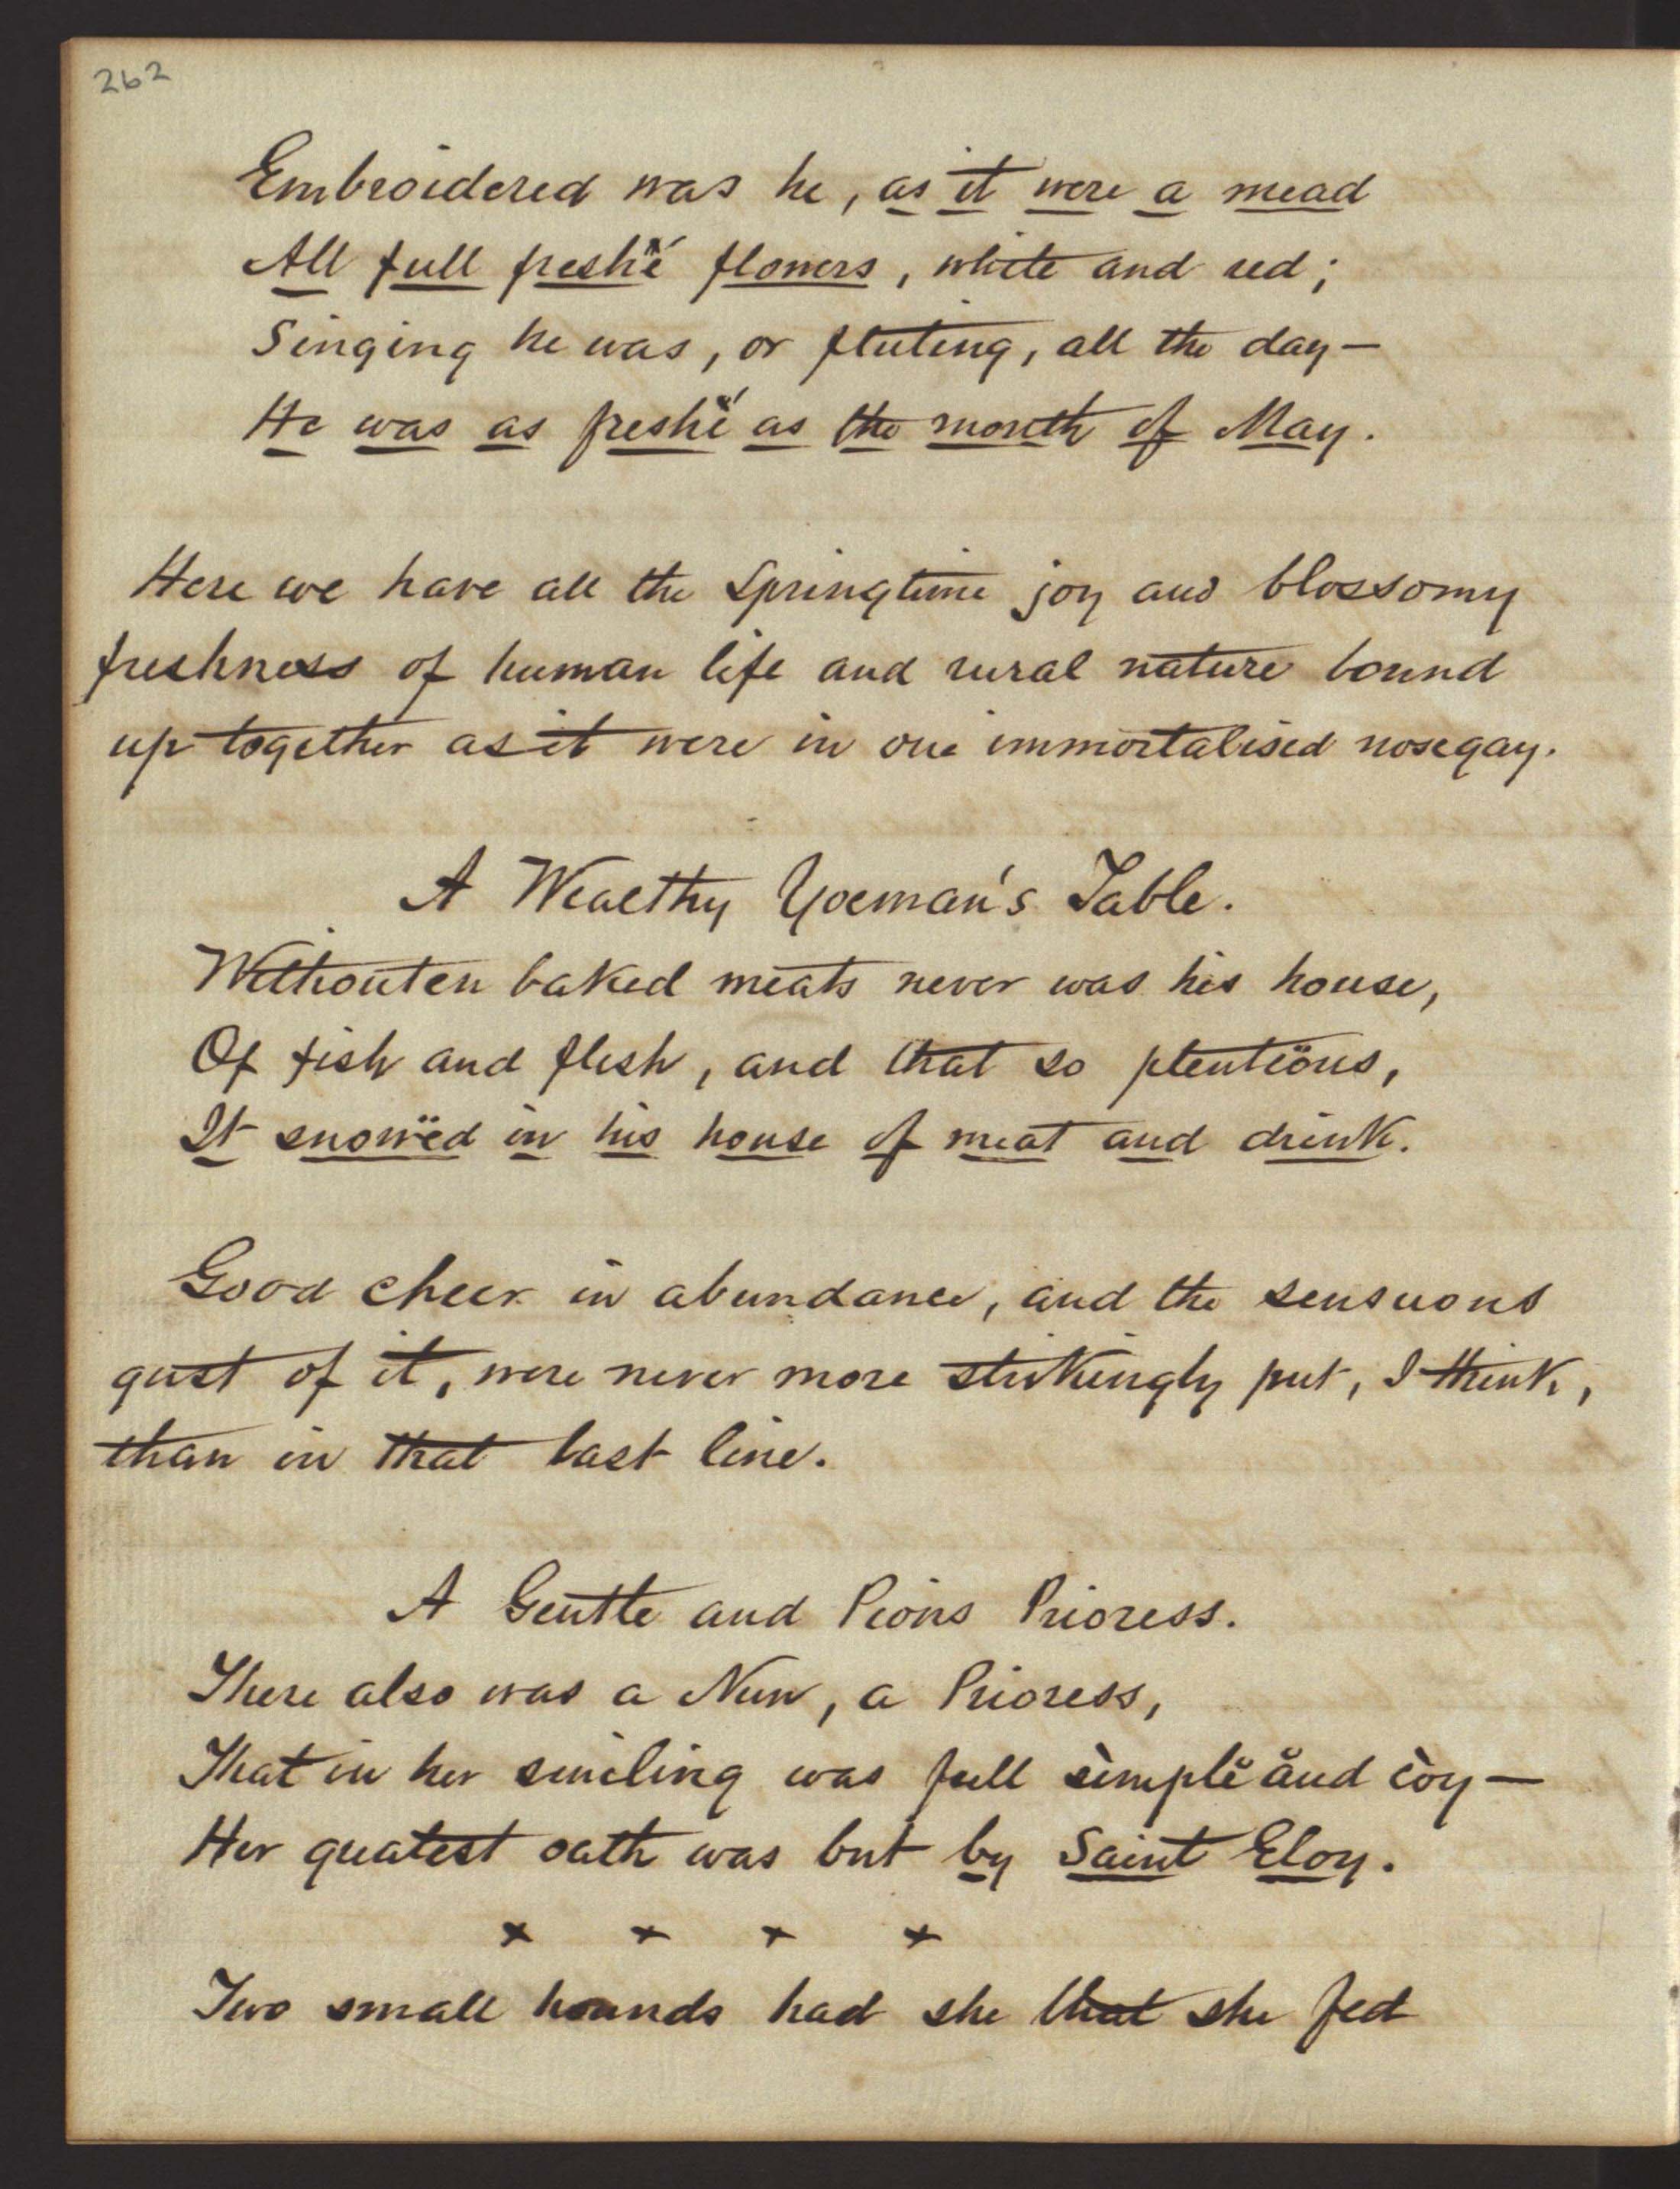 262
Embroidered was he, as it were a mead
All full freshë flowers, white and red;
Singing he was, or fluting, all the day—
He was as freshë as the month of May.
Here we have all the Springtime joy and blossomy
freshness of human life and rural nature bound
up together as it were in one immortalised nosegay.
A Wealthy Yoeman's Table.
Withouten baked meats never was his house,
Of fish and flesh, and that so plentëous,
It snowëd in his house of meat and drink.
Good cheer in abundance, and the sensuous
gust of it, were never more strikingly put, I think,
than in that last line.
A Gentle and Pious Prioress.
There also was a Nun, a Prioress,
That in her smiling was full sìmplĕ ănd còy—
Her greatest oath was but by Saint Eloy.
x x x x
Two small hounds had she that she fed